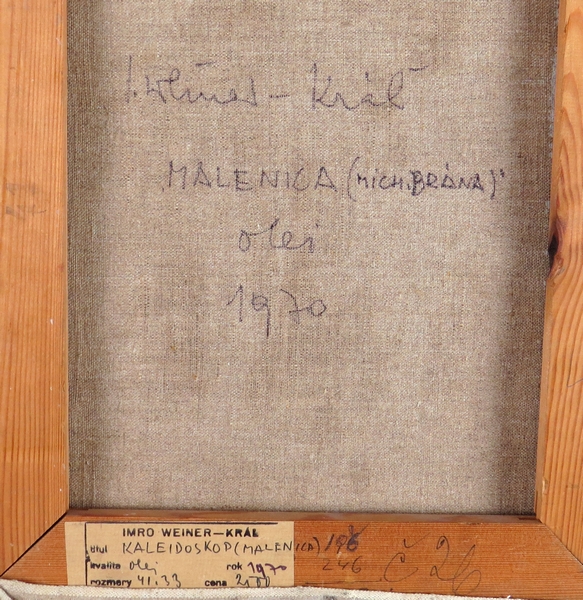 I. Weiner – Kráľ
MALENICA (MICH. BRÁNA)"
olej
1970
IMRO WEINER—KRÁL
titul KALEIDOSKOP (MALENICA) 196
kvalita olej rok 1970 246
rozmery 41.33 cena
č 26